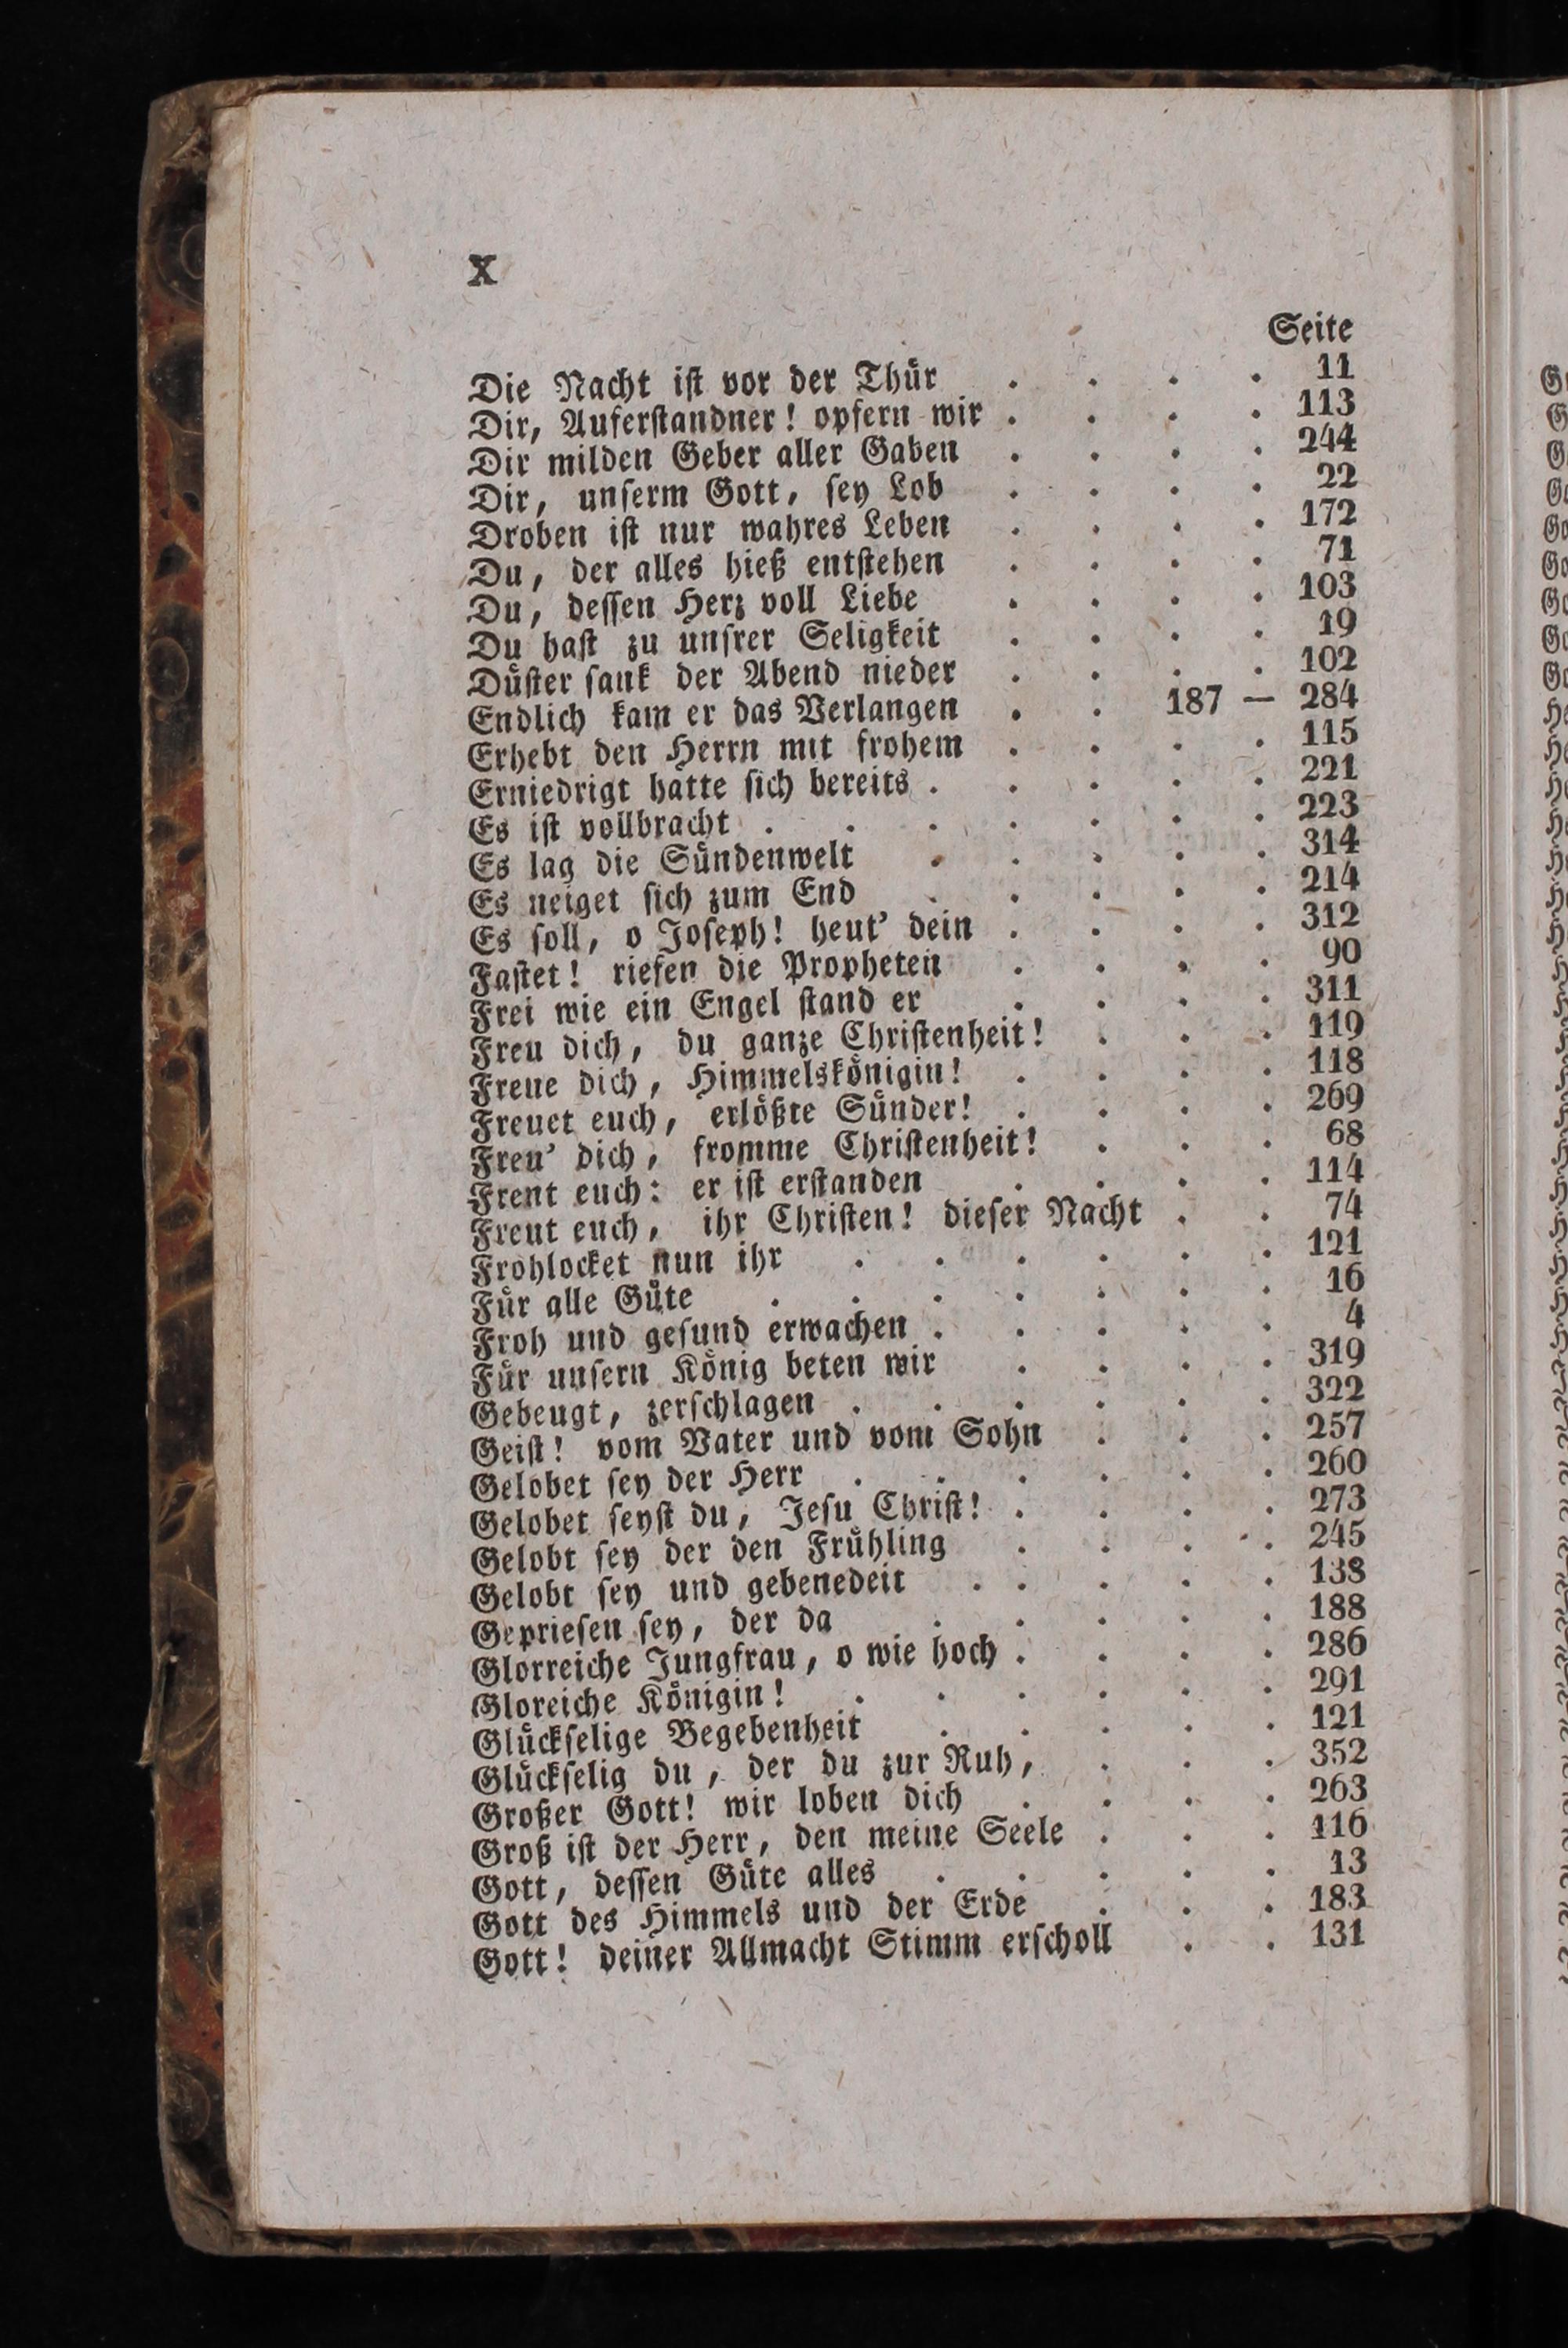 X
Seite
Die Nacht ist vor der Thür . . . . 11
Dir, Auferstandner! opfern wir . . . . 113
Dir milden Geber aller Gaben . . . . 244
Dir, unserm Gott, sey Lob . . . . 22
Droben ist nur wahres Leben . . . . 172
Du, der alles hieß entstehen . . . . 71
Du, dessen Herz voll Liebe . . . . 103
Du hast zu unsrer Seligkeit . . . . 19
Düster sank der Abend nieder . . . . 102
Endlich kam er das Verlangen . . 187 — 284
Erhebt den Herrn mit frohem . . . . 115
Erniedrigt hatte sich bereits . . . . . 221
Es ist vollbracht . . . . . . . 223
Es lag die Sündenwelt . . . . . 314
Es neiget sich zum End . . . . . 214
Es soll, o Joseph! heut' dein . . . . 312
Fastet! riefen die Propheten . . . . 90
Frei wie ein Engel stand er . . . . 311
Freu dich, du ganze Christenheit! . . . 119
Freue dich, Himmelskönigin! . . . . 118
Freuet euch, erlößte Sünder! . . . . 269
Freu' dich, fromme Christenheit! . . . 68
Freut euch: er ist erstanden . . . . 114
Freut euch, ihr Christen! dieser Nacht . . 74
Frohlocket nun ihr . . . . . . 121
Für alle Güte . . . . . . . 16
Froh und gesund erwachen . . . . . 4
Für unsern König beten wir . . . . 319
Gebeugt, zerschlagen . . . . . . 322
Geist! vom Vater und vom Sohn . . . 257
Gelobet sey der Herr . . . . . . 260
Gelobet seyst du, Jesu Christ! . . . . 273
Gelobt sey der den Frühling . . . . 245
Gelobt sey und gebenedeit . . . . . 138
Gepriesen sey, der da . . . . . 188
Glorreiche Jungfrau, o wie hoch . . . . 286
Gloreiche Königin! . . . . . . 291
Glückselige Begebenheit . . . . . 121
Glückselig du, der du zur Ruh, . . . 352
Großer Gott! wir loben dich . . . . 263
Groß ist der Herr, den meine Seele . . . 116
Gott, dessen Güte alles . . . . . 13
Gott des Himmels und der Erde . . . 183
Gott! deiner Allmacht Stimm erscholl . . 131